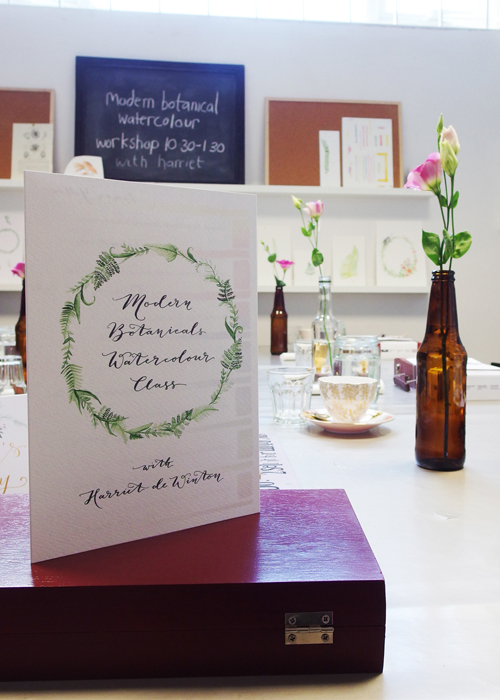 Modern botanical
watercolour
workshop 10.30-1.30
with harriet
Modern
Botanicals
Watercolour
Class
with
Harriet de Winton